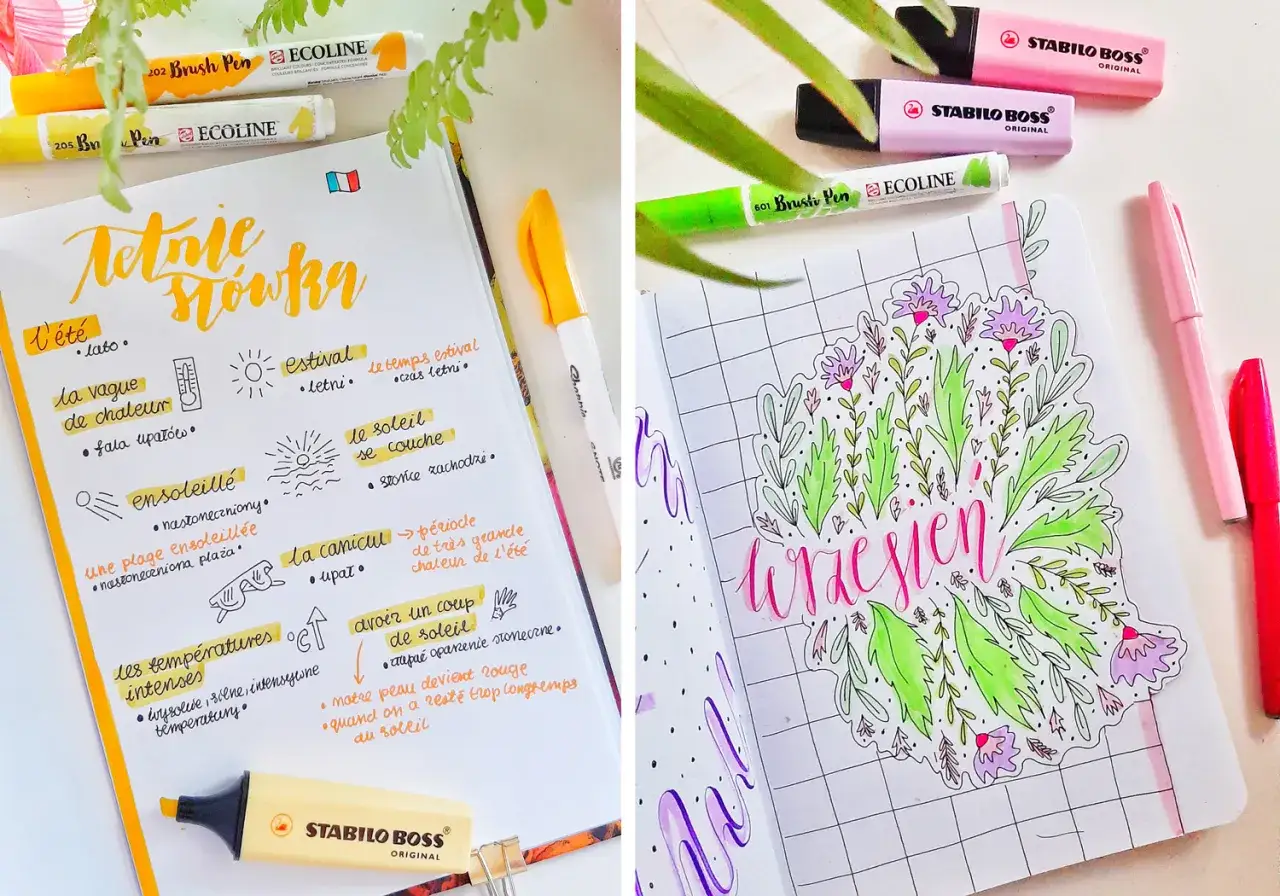 202 Brush Pen ECOLINE
205 Brush Pen ECOLINE
letnie
słówka
l'été
• lato •
la vague
de chaleur
• fala upałów •
estival
• letni •
le temps estival
• czas letni •
le soleil
se couche
• słońce zachodzi •
ensoleillé
• nasłoneczniony •
une plage ensoleillée
• nasłoneczniona plaża •
la canicul
• upał •
→ période
de très grande
chaleur de l'été
les températures
intenses
• wysokie, silne, intensywne
temperatury •
°C
avoir un coup
de soleil
• złapać oparzenie słoneczne •
• notre peau devient rouge
• quand on a resté trop longtemps
au soleil
STABILO BOSS
ORIGINAL
STABILO BOSS
ORIGINAL
STABILO BOSS
ORIGINAL
601 Brush Pen ECOLINE
wrzesień